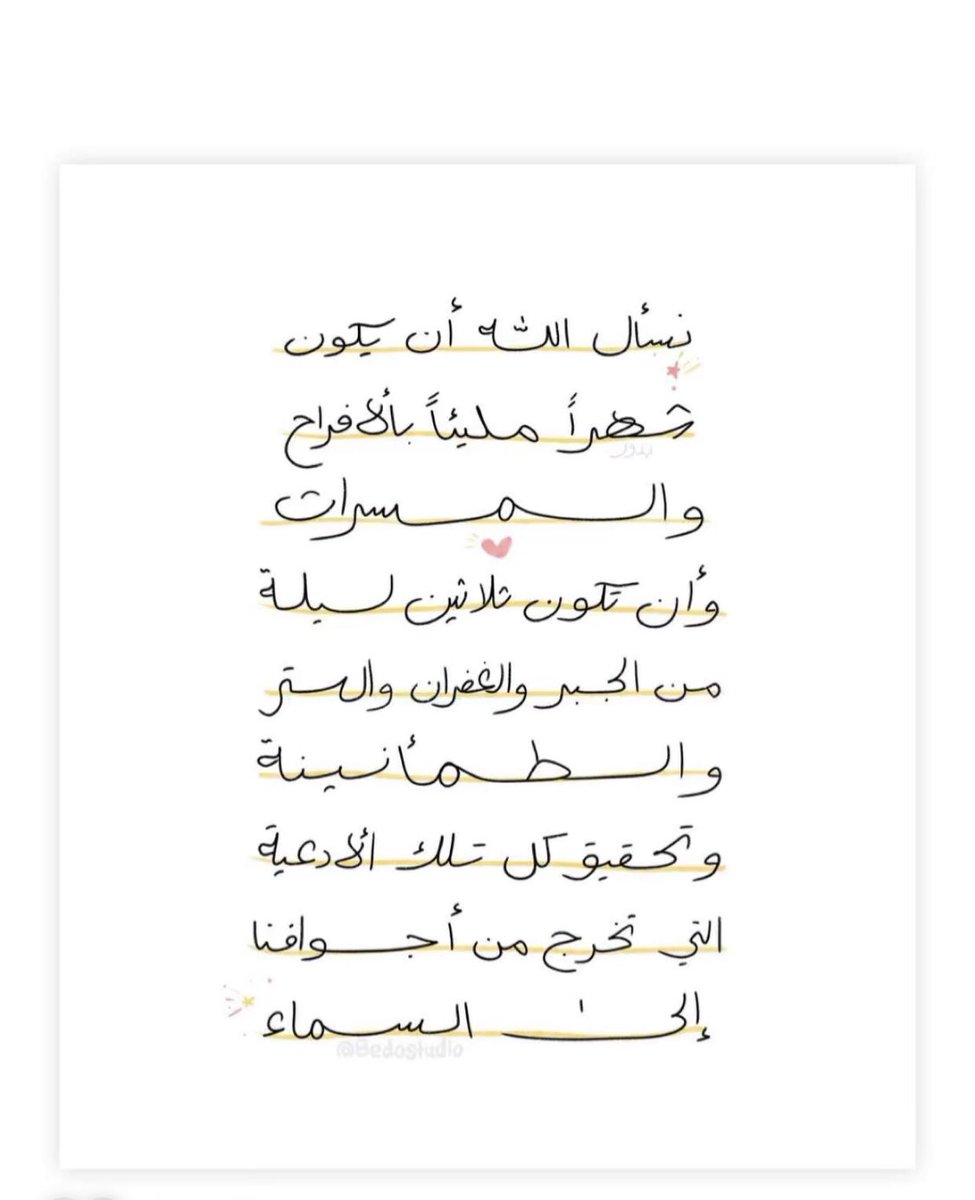 نسأل الله أن يكون
شهراً مليئاً بألافراح
والمسرات
وأن تكون ثلاثين ليلة
من الجبر والغفران والستر
والطمأنينة
وتحقيق كل تلك الأدعية
التي تخرج من أجوافنا
إلى السماء
@Bedostudio